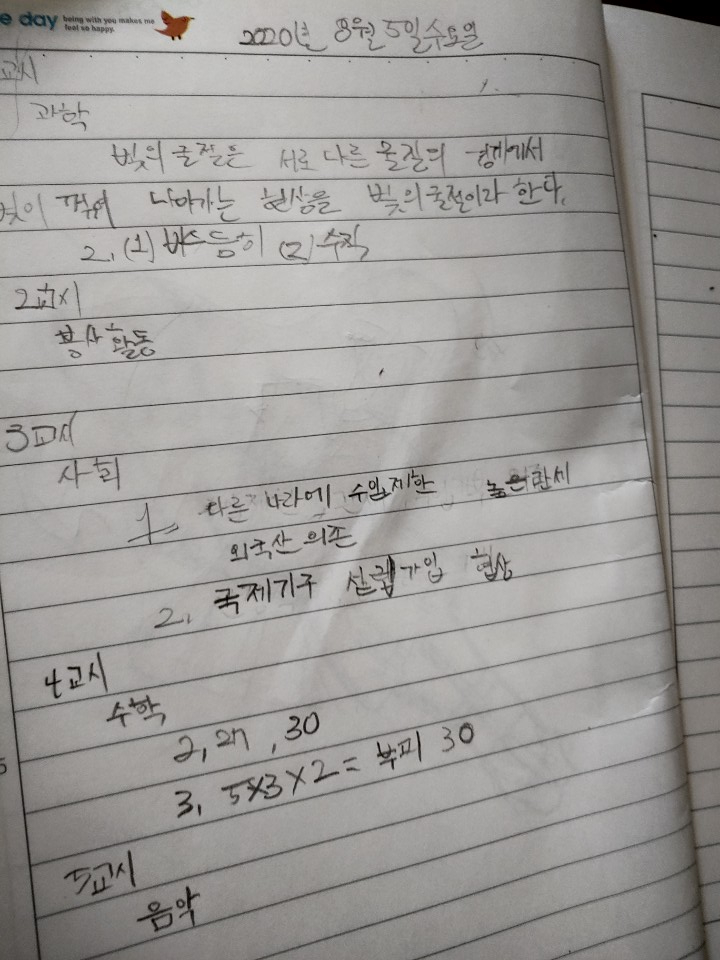 e day being with you makes me feel so happy.
2020년 8월 5일 수요일
교시
과학
빛의 굴절은 서로 다른 물질의 경계에서
빛이 꺾여 나아가는 현상을 빛의 굴절이라 한다.
2. (1) 비스듬히 (2) 수직
2교시
봉사활동
3교시
사회
1. 다른 나라에 수입제한 높은관세
외국산 의존
2. 국제기구 설립 가입 협상
4교시
수학
2, 개, 30
3, 5×3×2= 부피 30
5교시
음악